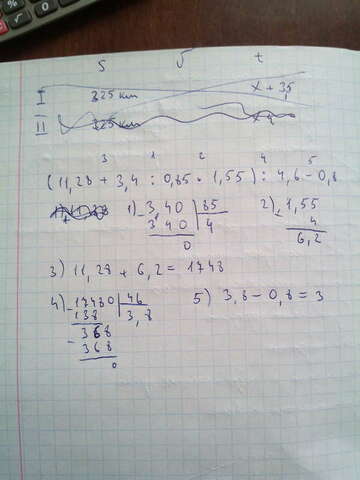 S V t
I 325 km x + 3,5
II 325 km
3 1 2 4 5
(11,28 + 3,4 : 0,85 · 1,55) : 4,6 - 0,8
1) 3,40 | 85 2) 1,55
340 4 4
0 6,2
3) 11,28 + 6,2 = 1748
4) 17480 | 46 5) 3,8 - 0,8 = 3
138 3,8
368
368
0